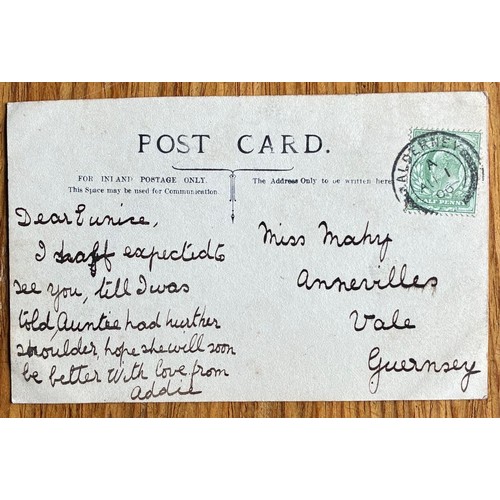 POST CARD.
FOR INLAND POSTAGE ONLY.
This Space may be used for Communication.
The Address Only to be written here
ALDERNEY
HALF PENNY
Dear Eunice,
I half expected to
see you, till I was
told, Auntee had hurt her
shoulder, hope she will soon
be better With love from
Addie
Miss Mahy
Annevilles
Vale
Guernsey